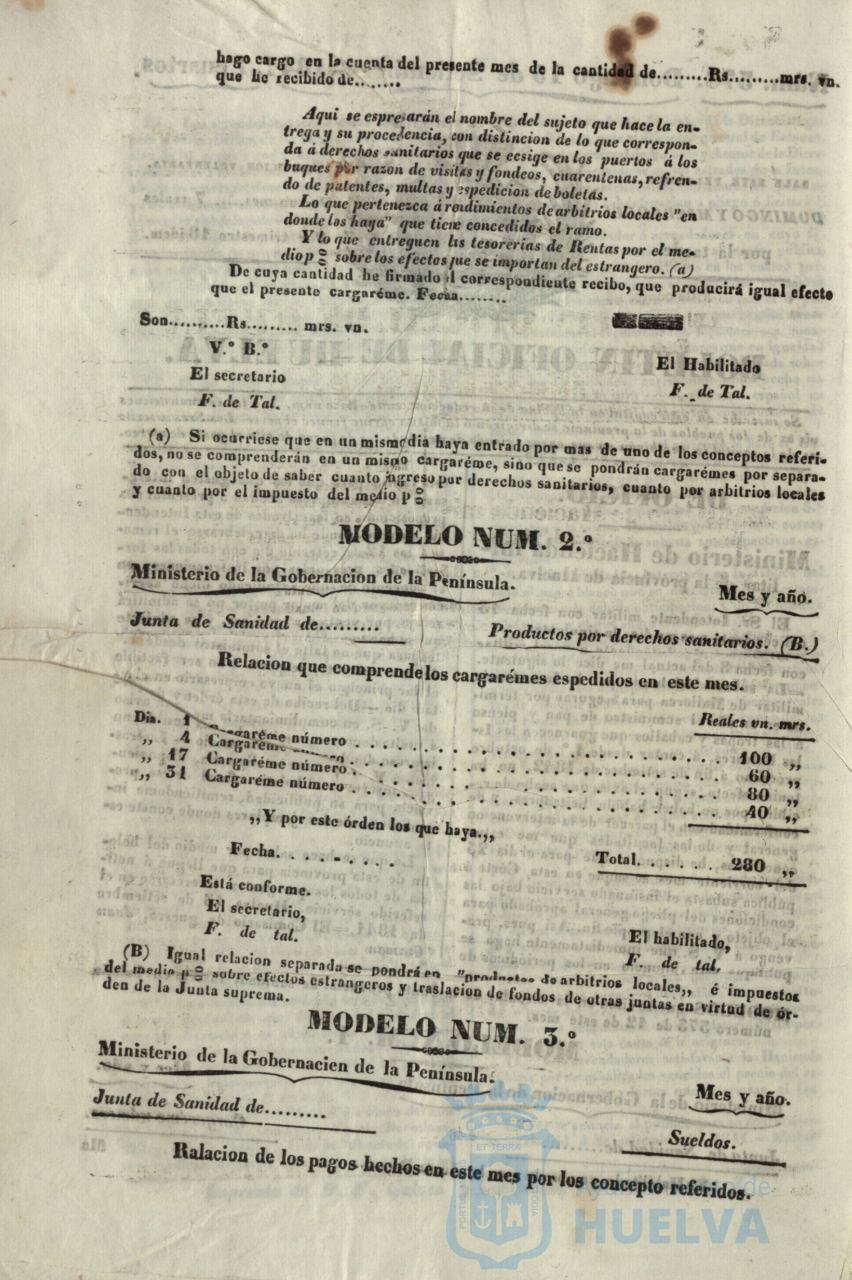 hago cargo en la cuenta del presente mes de la cantidad de.........Rs.........mrs. vn.
que he recibido de.......
Aqui se espresarán el nombre del sujeto que hace la en-
trega y su procedencia, con distincion de lo que correspon-
da á derechos sanitarios que se ecsige en los puertos á los
buques por razon de visitas y fondeos, cuarentenas, refren-
do de patentes, multas y espedicion de boletas.
Lo que pertenezca á rendimientos de arbitrios locales "en
donde los haya" que tiene concedidos el ramo.
Y lo que entreguen las tesorerias de Rentas por el me-
dio p 0/0 sobre los efectos que se importan del estrangero. (a)
De cuya cantidad he firmado el correspondiente recibo, que producirá igual efecto
que el presente cargaréme. Fecha........
Son..........Rs......... mrs. vn.
V.º B.º
El Habilitado
El secretario
F. de Tal.
F. de Tal.
(a) Si ocurriese que en un mismo dia haya entrado por mas de uno de los conceptos referi-
dos, no se comprenderán en un mismo cargaréme, sino que se pondrán cargarémes por separa-
do con el objeto de saber cuanto ingreso por derechos sanitarios, cuanto por arbitrios locales
y cuanto por el impuesto del medio p 0/0
MODELO NUM. 2.º
Ministerio de la Gobernacion de la Península.
Mes y año.
Junta de Sanidad de.........
Productos por derechos sanitarios. (B.)
Relacion que comprende los cargarémes espedidos en este mes.
Reales vn. mrs.
Dia. 1 Cargaréme número . . . . . . . . . . 100 ,,
,, 4 Cargaréme número . . . . . . . . . . 60 ,,
,, 17 Cargaréme número . . . . . . . . . . 80 ,,
,, 31 Cargaréme número . . . . . . . . . . 40 ,,
,,Y por este órden los que haya.,,
Fecha. . . . . . . . .
Total. . . . . . 280 ,,
Está conforme.
El secretario,
El habilitado,
F. de tal.
F. de tal.
(B) Igual relacion separada se pondrá en "productos de arbitrios locales,, é impuestos
del medio p 0/0 sobre efectos estrangeros y traslacion de fondos de otras juntas en virtud de ór-
den de la Junta suprema.
MODELO NUM. 3.º
Ministerio de la Gobernacien de la Península.
Mes y año.
Junta de Sanidad de.........
Sueldos.
Ralacion de los pagos hechos en este mes por los concepto referidos.
Ayuntamiento de
HUELVA